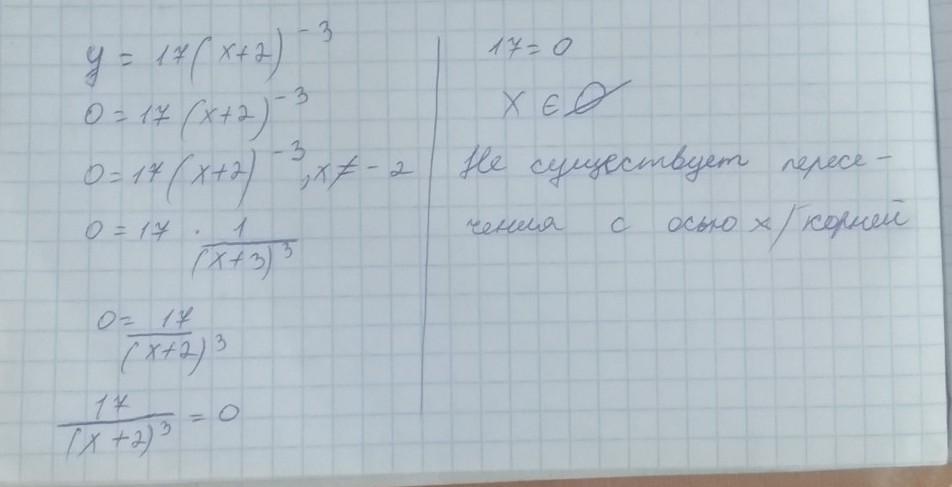 y = 17(x+2)⁻³
0 = 17(x+2)⁻³
0 = 17(x+2)⁻³, x ≠ -2
0 = 17 · 1/(x+3)³
0 = 17/(x+2)³
17/(x+2)³ = 0
17 = 0
X ∈ ∅
Не существует пересе-
чения с осью x/корней